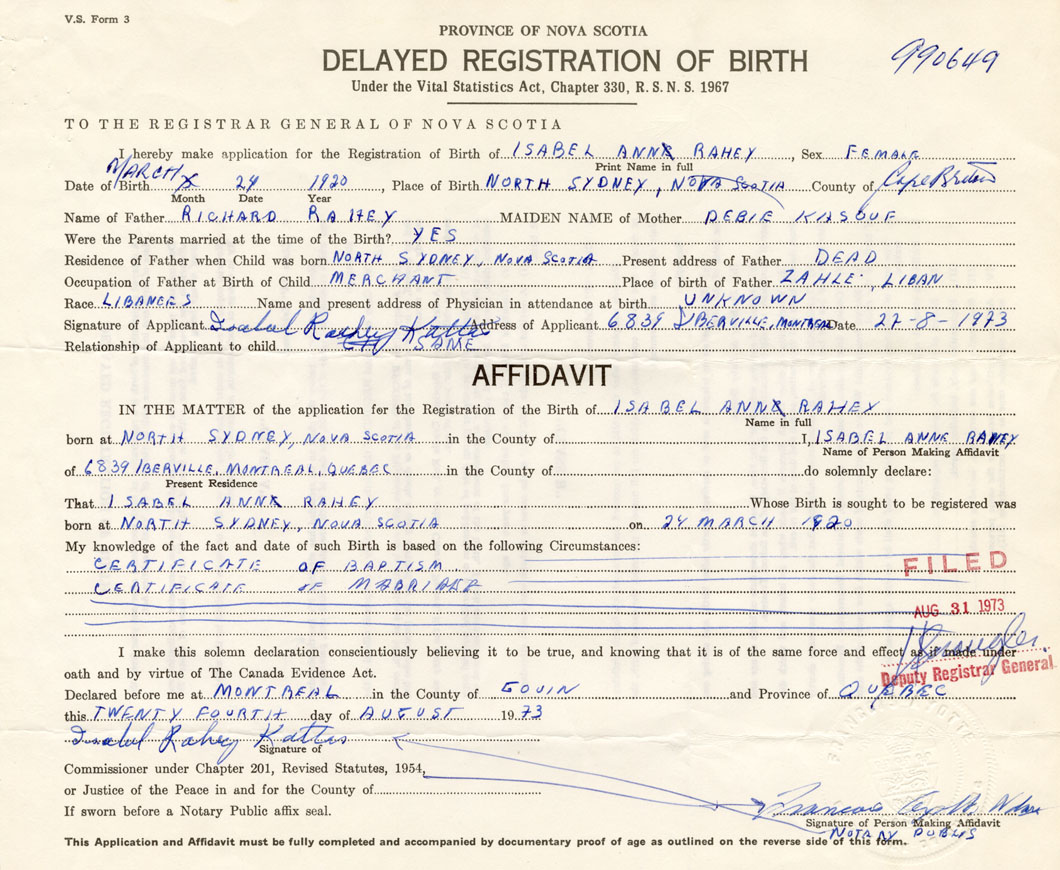 V.S. Form 3
PROVINCE OF NOVA SCOTIA
DELAYED REGISTRATION OF BIRTH
990649
Under the Vital Statistics Act, Chapter 330, R. S. N. S. 1967
TO THE REGISTRAR GENERAL OF NOVA SCOTIA
I hereby make application for the Registration of Birth of ISABEL ANNE RAHEY, Sex FEMALE
Print Name in full
Date of Birth MARCH 24 1920, Place of Birth NORTH SYDNEY, NOVA SCOTIA County of Cape Breton
Month Date Year
Name of Father RICHARD RAHEY MAIDEN NAME of Mother DEBIE KASOUF
Were the Parents married at the time of the Birth? YES
Residence of Father when Child was born NORTH SYDNEY, NOVA SCOTIA Present address of Father DEAD
Occupation of Father at Birth of Child MERCHANT Place of birth of Father ZAHLE LIBAN
Race LIBANEES Name and present address of Physician in attendance at birth UNKNOWN
Signature of Applicant Isabel Rahey Kattas Address of Applicant 6839 IBERVILLE, MONTREAL Date 27-8-1973
Relationship of Applicant to child SAME
AFFIDAVIT
IN THE MATTER of the application for the Registration of the Birth of ISABEL ANNE RAHEY
Name in full
born at NORTH SYDNEY, NOVA SCOTIA in the County of I, ISABEL ANNE RAHEY
Name of Person Making Affidavit
of 6839 IBERVILLE, MONTREAL, QUEBEC in the County of do solemnly declare:
Present Residence
That ISABEL ANNE RAHEY Whose Birth is sought to be registered was
born at NORTH SYDNEY, NOVA SCOTIA on 24 MARCH 1920
My knowledge of the fact and date of such Birth is based on the following Circumstances:
CERTIFICATE OF BAPTISM
FILED
CERTIFICATE OF MARRIAGE
AUG 31 1973
I make this solemn declaration conscientiously believing it to be true, and knowing that it is of the same force and effect as if made under
oath and by virtue of The Canada Evidence Act.
Deputy Registrar General
Declared before me at MONTREAL in the County of GOUIN and Province of QUEBEC
this TWENTY FOURTH day of AUGUST 1973
Isabel Rahey Kattas
Signature of
Commissioner under Chapter 201, Revised Statutes, 1954,
or Justice of the Peace in and for the County of
If sworn before a Notary Public affix seal.
Signature of Person Making Affidavit
NOTARY PUBLIS
This Application and Affidavit must be fully completed and accompanied by documentary proof of age as outlined on the reverse side of this form.